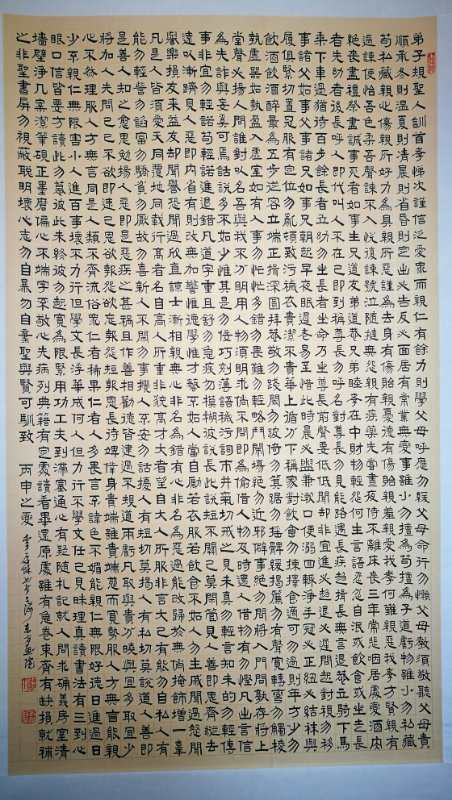 弟子規聖人訓首孝悌次謹信泛愛眾而親仁有餘力則學文父母呼應勿緩父母命行勿懶父母教須敬聽父母責
順承冬則溫夏則凊晨則省昏則定出必告反必面居有常業無變事雖小勿擅為苟擅為子道虧物雖小勿私藏
苟私藏親心傷親所好力為具親所惡謹為去身有傷貽親憂德有傷貽親羞親愛我孝何難親憎我孝方賢親有
過諫使更怡吾色柔吾聲諫不入悅復諫號泣隨撻無怨親有疾藥先嘗晝夜侍不離床喪三年常悲咽居處變酒肉
絕喪盡禮祭盡誠事死者如事生兄道友弟道恭兄弟睦孝在中財物輕怨何生言語忍忿自泯或飲食或坐走長
者先幼者後長呼人即代叫人不在己即到稱尊長勿呼名對尊長勿見能路遇長疾趨揖長無言退恭立騎下馬
乘下車過猶待百步餘長者立幼勿坐長者坐命乃坐尊長前聲要低低不聞卻非宜進必趨退必遲問起對視勿移
事諸父如事父事諸兄如事兄朝起早夜眠遲老易至惜此時晨必盥兼漱口便溺回輒淨手冠必正紐必結襪與
履俱緊切置冠服有定位勿亂頓致污穢衣貴潔不貴華上循分下稱家對飲食勿揀擇食適可勿過則年方少勿
飲酒飲酒醉最為醜步從容立端正揖深圓拜恭敬勿踐閾勿跛倚勿箕踞勿搖髀緩揭簾勿有聲寬轉彎勿觸棱
執虛器如執盈入虛室如有人事勿忙忙多錯勿畏難勿輕略鬥鬧場絕勿近邪僻事絕勿問將入門問孰存將上
堂聲必揚人問誰對以名吾與我不分明用人物須明求倘不問即為偷借人物及時還借物有勿慳凡出言信
為先詐與妄奚可焉話說多不如少惟其是勿佞巧刻薄語穢污詞市井氣切戒之見未真勿輕言知未的勿輕傳
事非宜勿輕諾苟輕諾進退錯凡道字重且舒勿急疾勿模糊彼說長此說短不關己莫閒管見人善即思齊縱去
遠以漸躋見人惡即內省有則改無加警惟德學惟才藝不如人當自勵若衣服若飲食不如人勿生慼聞過怒聞
譽樂損友來益友卻聞譽恐聞過欣直諒士漸相親無心非名為錯有心非名為惡過能改歸於無倘掩飾增一辜
凡是人皆須愛天同覆地同載行高者名自高人所重非貌高才大者望自大人所服非言大己有能勿自私人有
能勿輕訾勿諂富勿驕貧勿厭故勿喜新人不閒勿事攪人不安勿話擾人有短切莫揭人有私切莫說道人善即
是善人知之愈思勉揚人惡即是惡疾之甚禍且作善相勸德皆建過不規道兩虧凡取與貴分曉與宜多取宜少
將加人先問己己不欲即速已恩欲報怨欲忘報怨短報恩長待婢僕身貴端雖貴端慈而寬勢服人
心不然理服人方無言同是人類不齊流俗眾仁者稀果仁者人多畏言不諱色不媚能親仁無限好德日進過日
少不親仁無限害小人進百事壞不力行但學文長浮華成何人但力行不學文任己見昧理真讀書法有三到心
眼口信皆要方讀此勿慕彼此未終彼勿起寬為限緊用功工夫到滯塞通心有疑隨札記就人問求確義房室清
牆壁淨几案潔筆硯正墨磨偏心不端字不敬心先病列典籍有定處讀看畢還原處雖有急卷束齊有缺損就補
之非聖書屏勿視蔽聰明壞心志勿自暴勿自棄聖與賢可馴致 丙申之夏